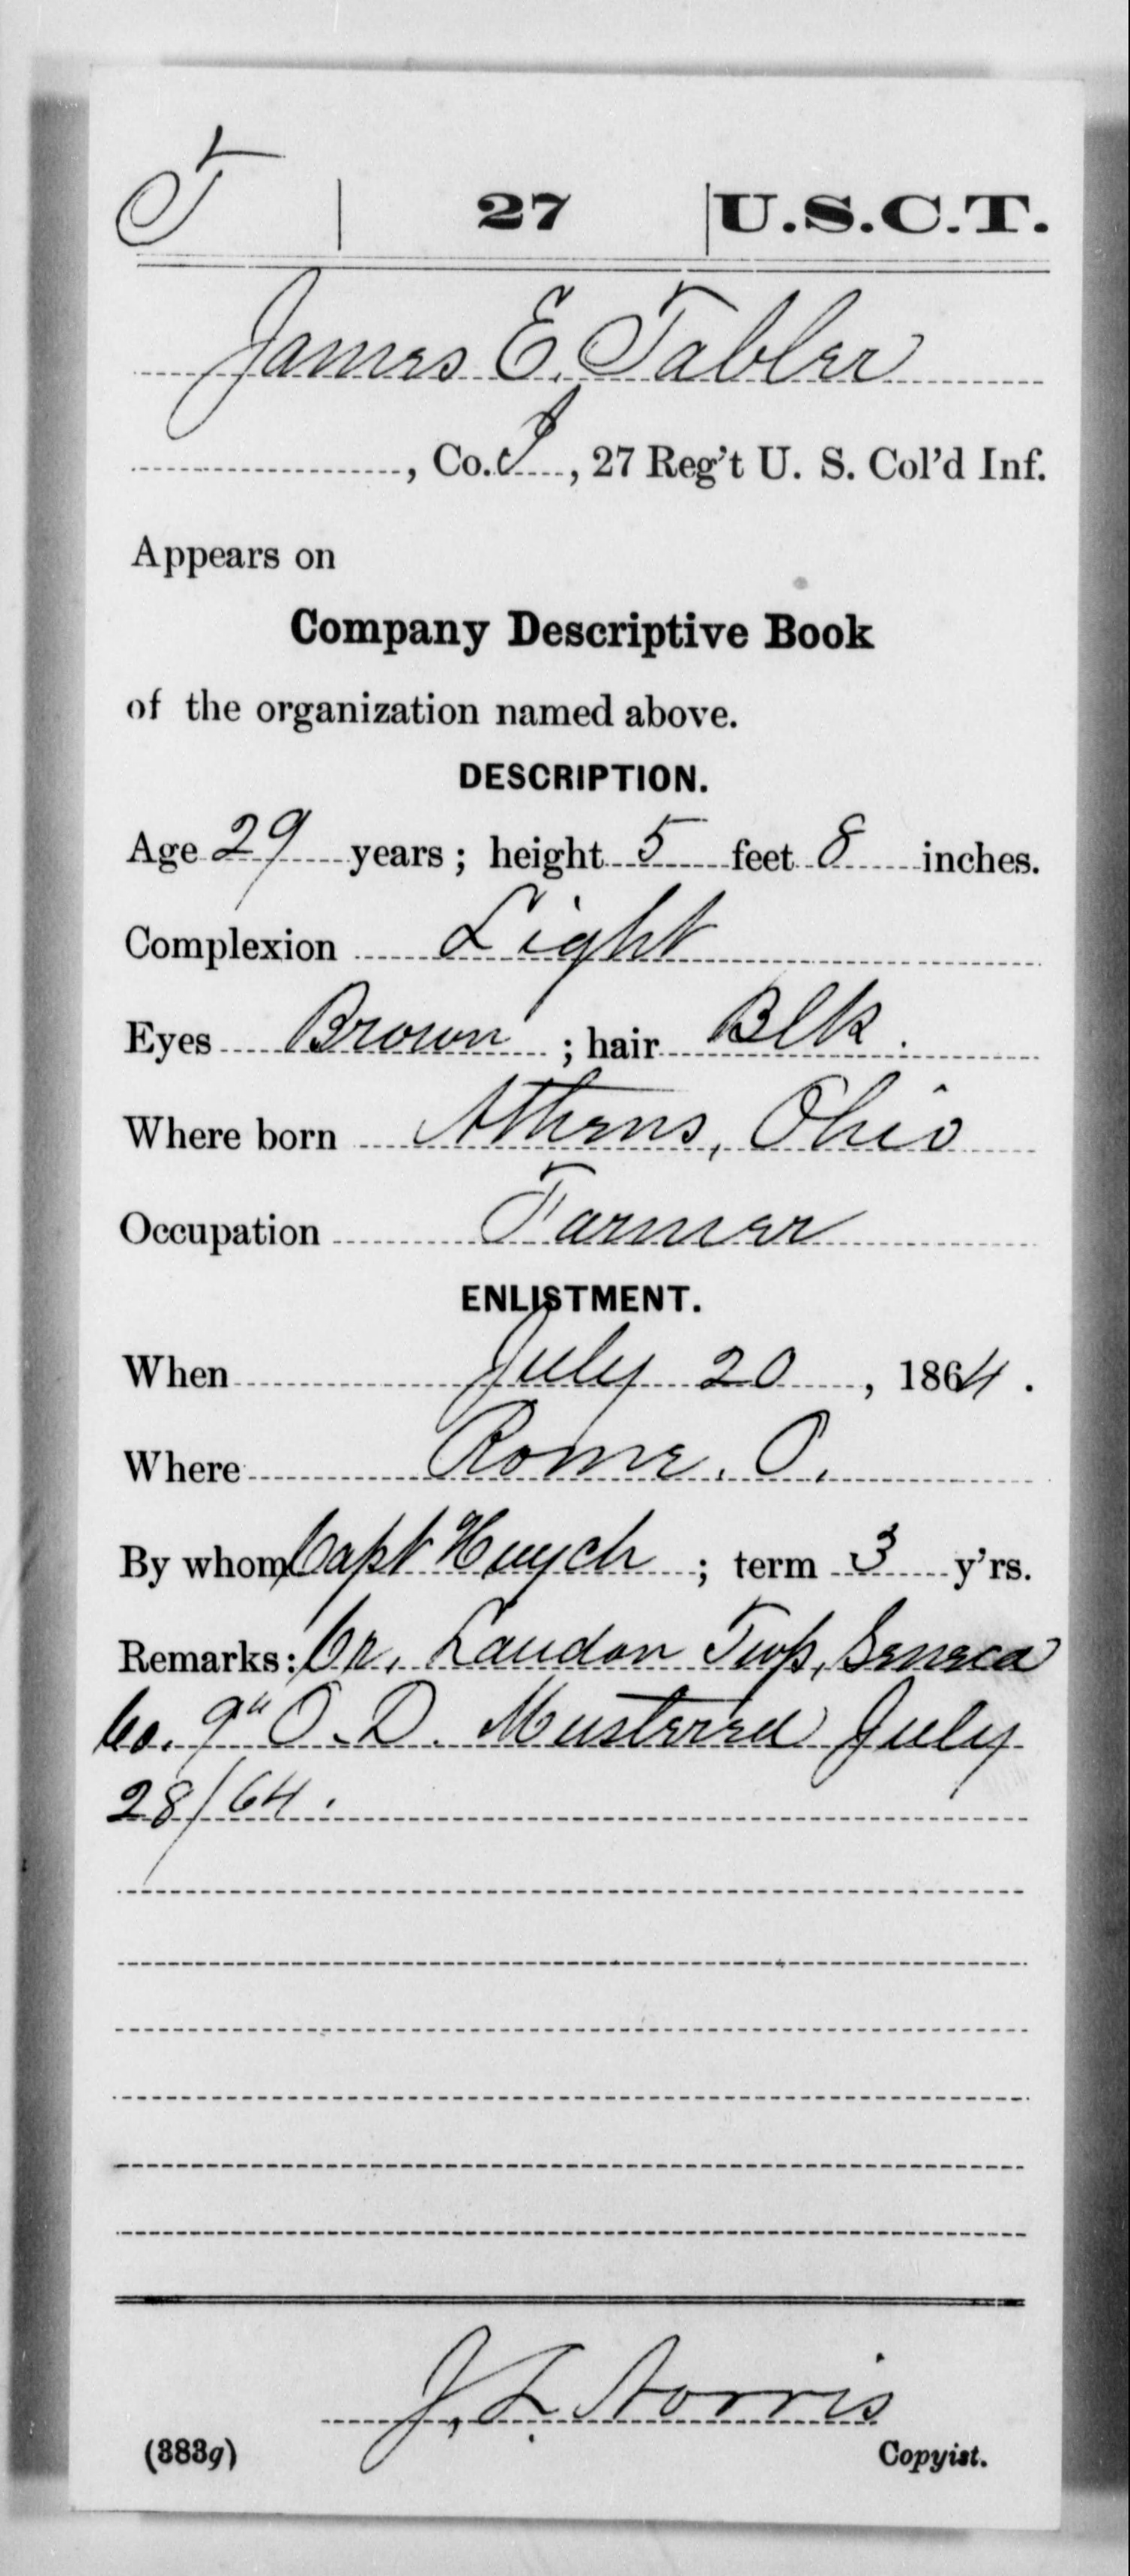 T | 27 | U.S.C.T.
James E. Tabler
, Co. I, 27 Reg't U. S. Col'd Inf.
Appears on
Company Descriptive Book
of the organization named above.
DESCRIPTION.
Age 29 years; height 5 feet 8 inches.
Complexion Light
Eyes Brown; hair Blk.
Where born Athens, Ohio
Occupation Farmer
ENLISTMENT.
When July 20, 1864.
Where Rome. O.
By whom Capt ; term 3 y'rs.
Remarks: Cr. Laudon Twp, Seneca
Co. 9" O. D. Mustered July
28/64.
J. L. Norris
(383g) Copyist.